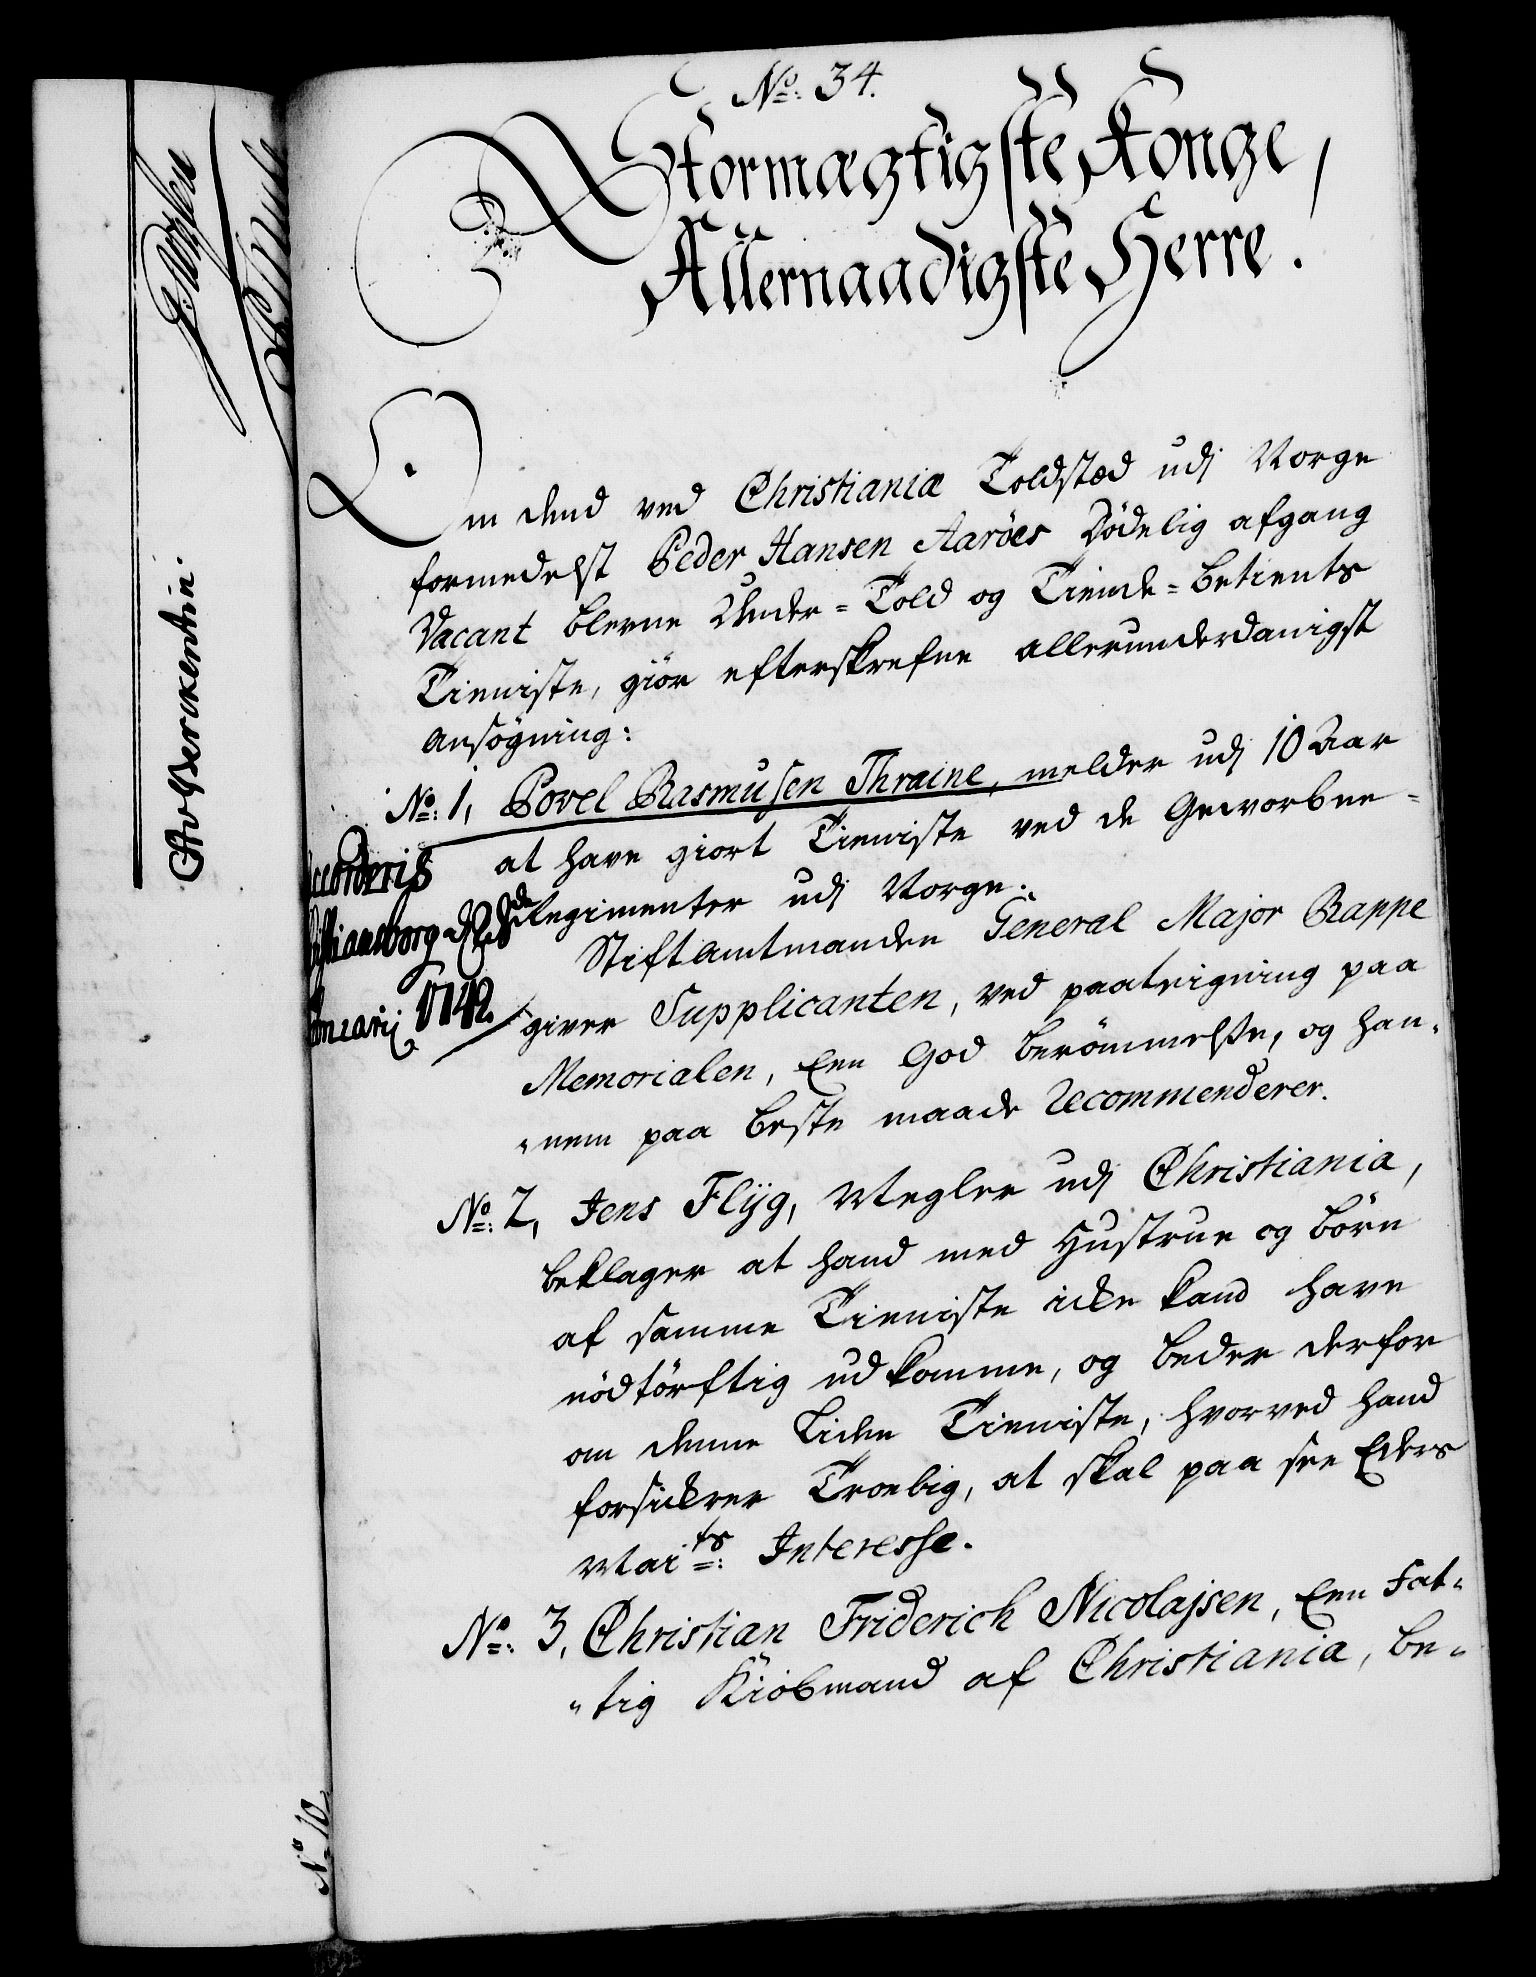 No: 34.
Stormægtigste Konge,
Allernaadigste Herre.
Om dend ved Christianiæ Toldstæd udj Norge
formedelst Peder Hansen Aaröes Dödelig afgang
Vacant blevne Under-Told og Tiende-betients
Tieniste, giör efterskrefne allerunderdanigst
ansögning:
No: 1, Povel Rasmusen Thraine, melder udj 10 Aar
at have giort Tieniste ved de Geworbne-
Regimenter udj Norge:
Stiftamtmanden General Major Rappe
giver Supplicanten, ved paateigning paa
Memorialen, Een God berömmelse, og han-
nem paa beste maade Recommenderer.
No: 2, Jens Flÿg, Megler udj Christiania,
beklager at hand med Hustrue og börn
af samme Tieniste icke kand have
nödtörftig udkomme, og beder derfor
om denne liden Tieniste, hvorved hand
forsickrer Troelig, at skal paa see Eders
Maits: Interesse.
No: 3, Christian Friderich Nicolajsen, Een Fat-
tig Kiöbmand af Christiania, be-
ccorderis
istiansborg d.
nuarij 1742.
CAvBerckentin.
No 10